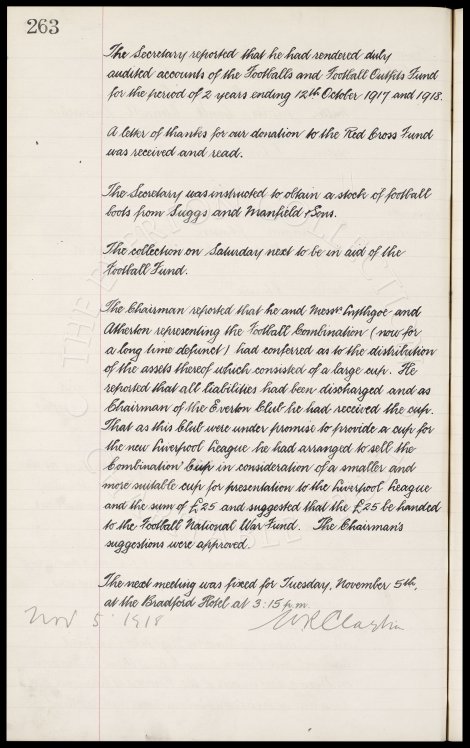 263
The Secretary reported that he had rendered duly
audited accounts of the Footballs and Football Outfits Fund
for the period of 2 years ending 12th October 1917 and 1918.
A letter of thanks for our donation to the Red Cross Fund
was received and read.
The Secretary was instructed to obtain a stock of football
boots from Suggs and Manfield & Sons.
The collection on Saturday next to be in aid of the
Football Fund.
The Chairman reported that he and Messrs Lythgoe and
Atherton representing the Football Combination (now for
a long time defunct) had conferred as to the distribution
of the assets thereof which consisted of a large cup. He
reported that all liabilities had been discharged and as
Chairman of the Everton Club he had received the cup.
That as this Club were under promise to provide a cup for
the new Liverpool League he had arranged to sell the
Combination Cup in consideration of a smaller and
more suitable cup for presentation to the Liverpool League
and the sum of £25 and suggested that the £25 be handed
to the Football National War Fund. The Chairman's
suggestions were approved.
The next meeting was fixed for Tuesday, November 5th,
at the Bradford Hotel at 3:15 p.m.
Nov 5 1918 WR Clayton